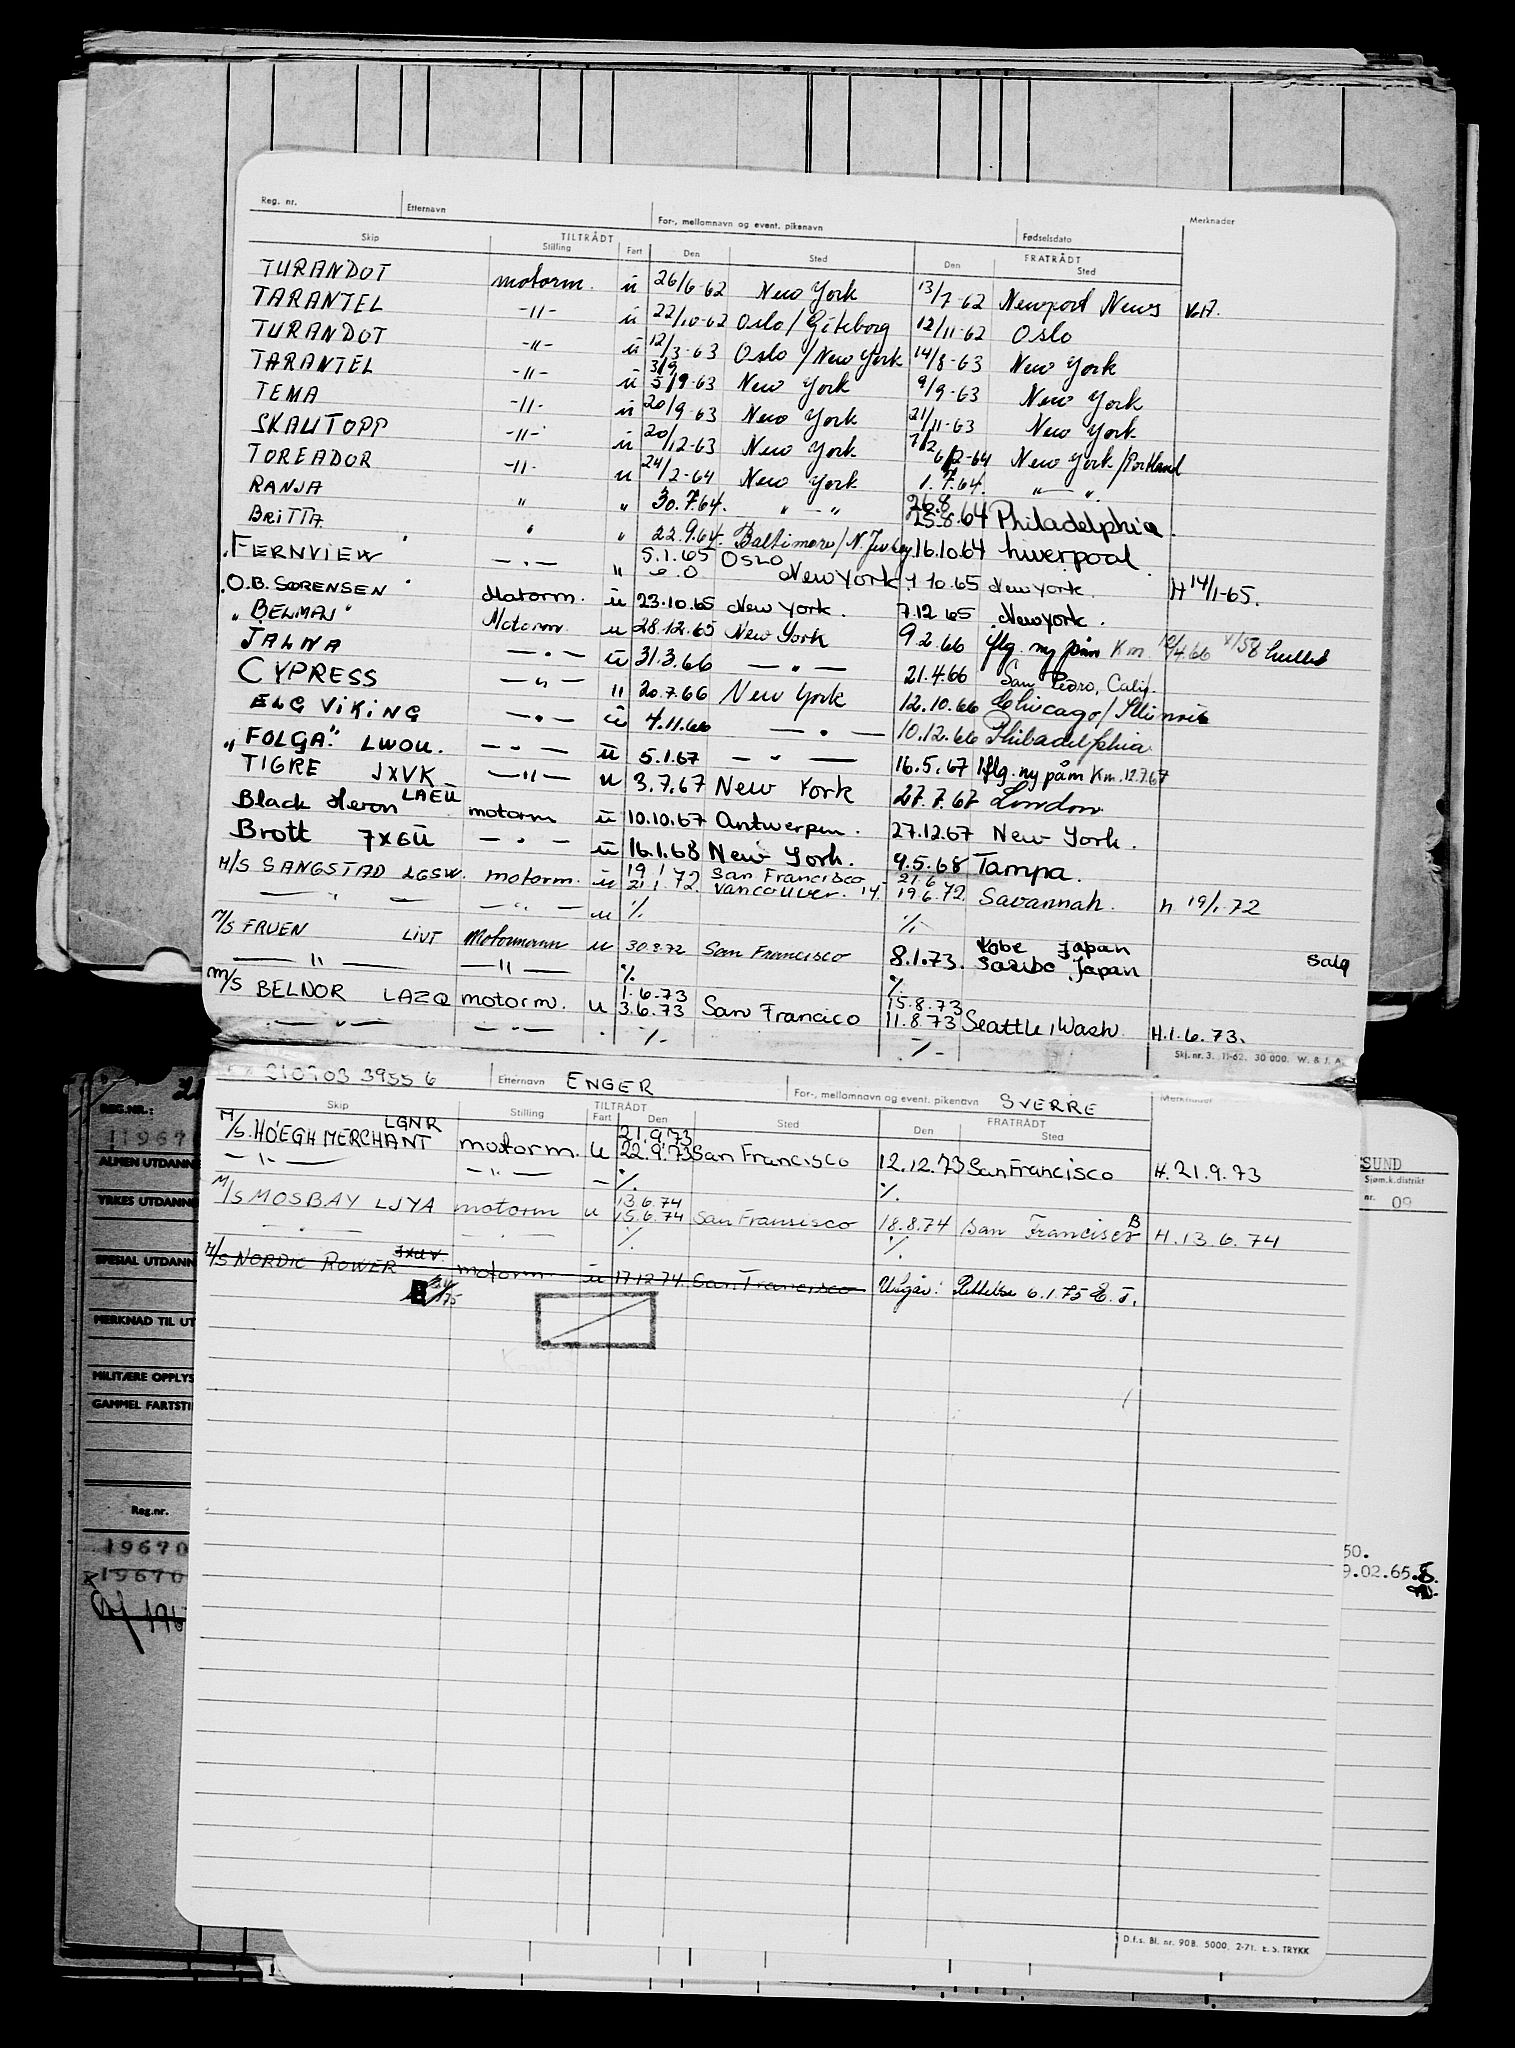 Reg. nr. Etternavn For-, mellomnavn og event. pikenavn Fødselsdato Merknader
Skip TILTRÅDT Stilling Fart Den Sted Den FRATRÅDT Sted
TURANDOT motorm. u 26/6-62 New York 13/7-62 Newport News
TARANTEL -"- u 22/10-62 Oslo/Göteborg 12/11-62 Oslo
TURANDOT -"- u 12/3-63 Oslo/New York 14/8-63 New York
TARANTEL -"- u 3/9 5/9-63 New York 9/9-63 New York
TEMA -"- u 20/9-63 New York 21/11-63 New York
SKAUTOPP -"- u 20/12-63 New York 7/2 6/2-64 New York/Portland
TOREADOR -"- u 24/2-64 New York 1.7.64. " — "
RANJA " " 30.7.64. " - " 26.8 25.8.64 Philadelphia.
BRITTA " " 22.9.64. Baltimore/N. Jersey 16.10.64 Liverpool.
FERNVIEW — " — " 5.1.65 OSLO New York 1.10.65 New York. H 14/1-65.
O.B. SØRENSEN Motorm. u 23.10.65 New York. 7.12 65 New York.
"BELMAJ" Motorm. u 28.12.65 New York 9.2.66 iflg. ny påm Km.
JALNA — " — u 31.3.66 — " — 21.4.66 San Pedro, Calif.
CYPRESS — " — " 20.7.66 New York 12.10.66 Chicago/Illinois
ELG VIKING — " — u 4.11.66 — " — 10.12.66 Philadelphia
"FOLGA" LWOU. — " — u 5.1.67 — " — 16.5.67 iflg. ny påm Km. 12.7.67
TIGRE JXVK — " — u 3.7.67 New York 27.7.67 London
Black Heron LAEU motorm u 10.10.67 Antwerpen. 27.12.67 New York.
Brott JXGU — " — u 16.1.68 New York. 9.5.68 Tampa.
M/S SANGSTAD LGSW. motorm. u 19.1 21.1.72 San Francisco Vancouver. 14. 21.6 19.6.72. Savannah. H 19/1-72
— " — — " — u %. %.
M/S FRUEN LIVT Motormann u 30.8.72 San Francisco 8.1.73. Kobe Japan Sasebo Japan Salg
— " — — " — %. %.
M/S BELNOR LAZQ motorm. u 1.6.73 3.6.73 San Francico 15.8.73 11.8.73 Seattle, Wash. H.1.6.73.
— " — — " — %. %.
Skj. nr. 3. 11-62. 30 000. W. & J. A.
210903 39556 Etternavn ENGER For-, mellomnavn og event. pikenavn SVERRE Merknader
Skip Stilling TILTRÅDT Fart Den Sted Den FRATRÅDT Sted
M/S. HÖEGH MERCHANT LGNR motorm. u 21.9.73 22.9.73 San Francisco 12.12.73 San Francisco H. 21.9.73
— " — — " — — %. %.
M/S MOSBAY LJYA motorm u 13.6.74 15.6.74 San Fransisco 18.8.74 San Francisco H. 13.6.74
— " — — " — %. %.
M/S NORDIC ROWER JXUV motorm u 17.12.74. San Francisco Utgår: Rettelse 6.1.75 E.T.
D.f.s. Bl. nr. 90B. 5000. 2-71. E.S. TRYKK
REG.NR.:
11967
ALMEN UTDANNE
YRKES UTDANNE
SPESIAL UTDANN
MERKNAD TIL UT
MILITÆRE OPPLYS
GAMMEL FARTSTI
Reg.nr.
19670
x19670
SUND
Sjøm.k.distrikt
nr. 09
50.
9.02.65.